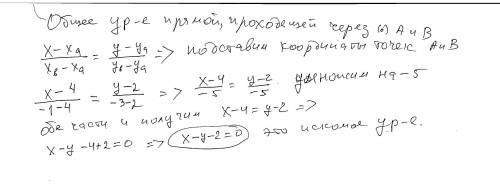 Общее ур-е прямой, проходящей через (·) A и B
x-xₐ / xв-xₐ = y-yₐ / yв-yₐ => подставим координаты точек A и B
x-4 / -1-4 = y-2 / -3-2 => x-4 / -5 = y-2 / -5 умножим на -5
обе части и получим x-4=y-2 =>
x-y-4+2=0 => x-y-2=0 это искомое ур-е.